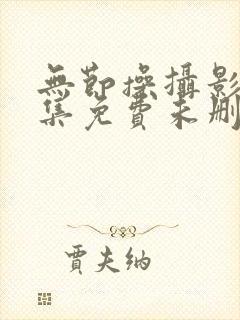 無節操攝影
集免費未刪
賈夫納